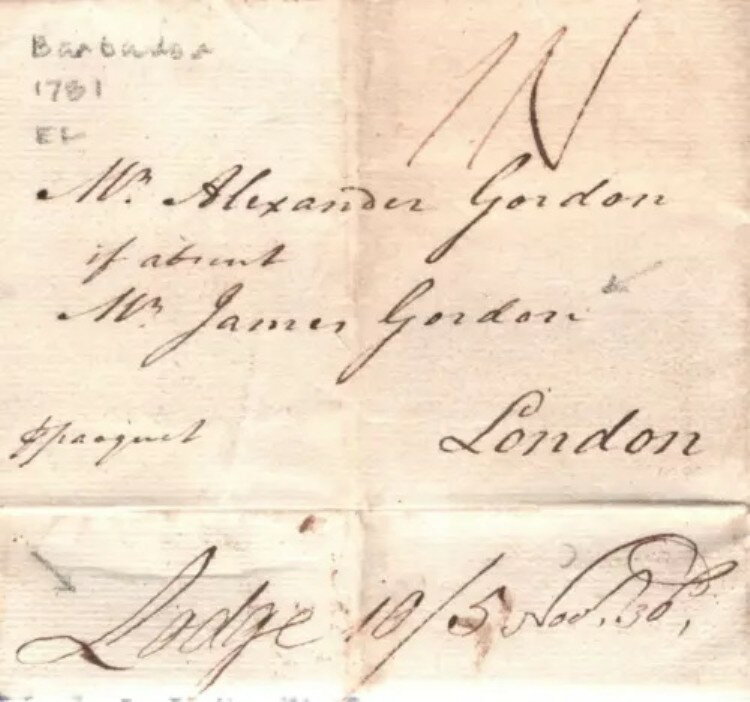 Barbados
1781
EL
Mr. Alexander Gordon
if absent
Mr. James Gordon
London
Lodge 10/5 Nov. 30th,